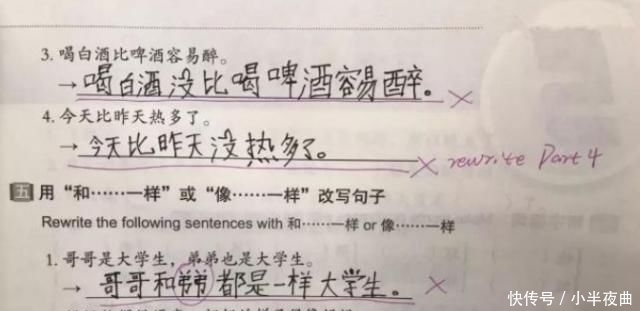 3. 喝白酒比啤酒容易醉。
→ 喝白酒没比喝啤酒容易醉。 ×
4. 今天比昨天热多了。
→ 今天比昨天没热多了。 × rewrite Part 4
五 用“和……一样”或“像……一样”改写句子
Rewrite the following sentences with 和……一样 or 像……一样
1. 哥哥是大学生，弟弟也是大学生。
→ 哥哥和弟弟都是一样大学生。 ×
快传号／小半夜曲